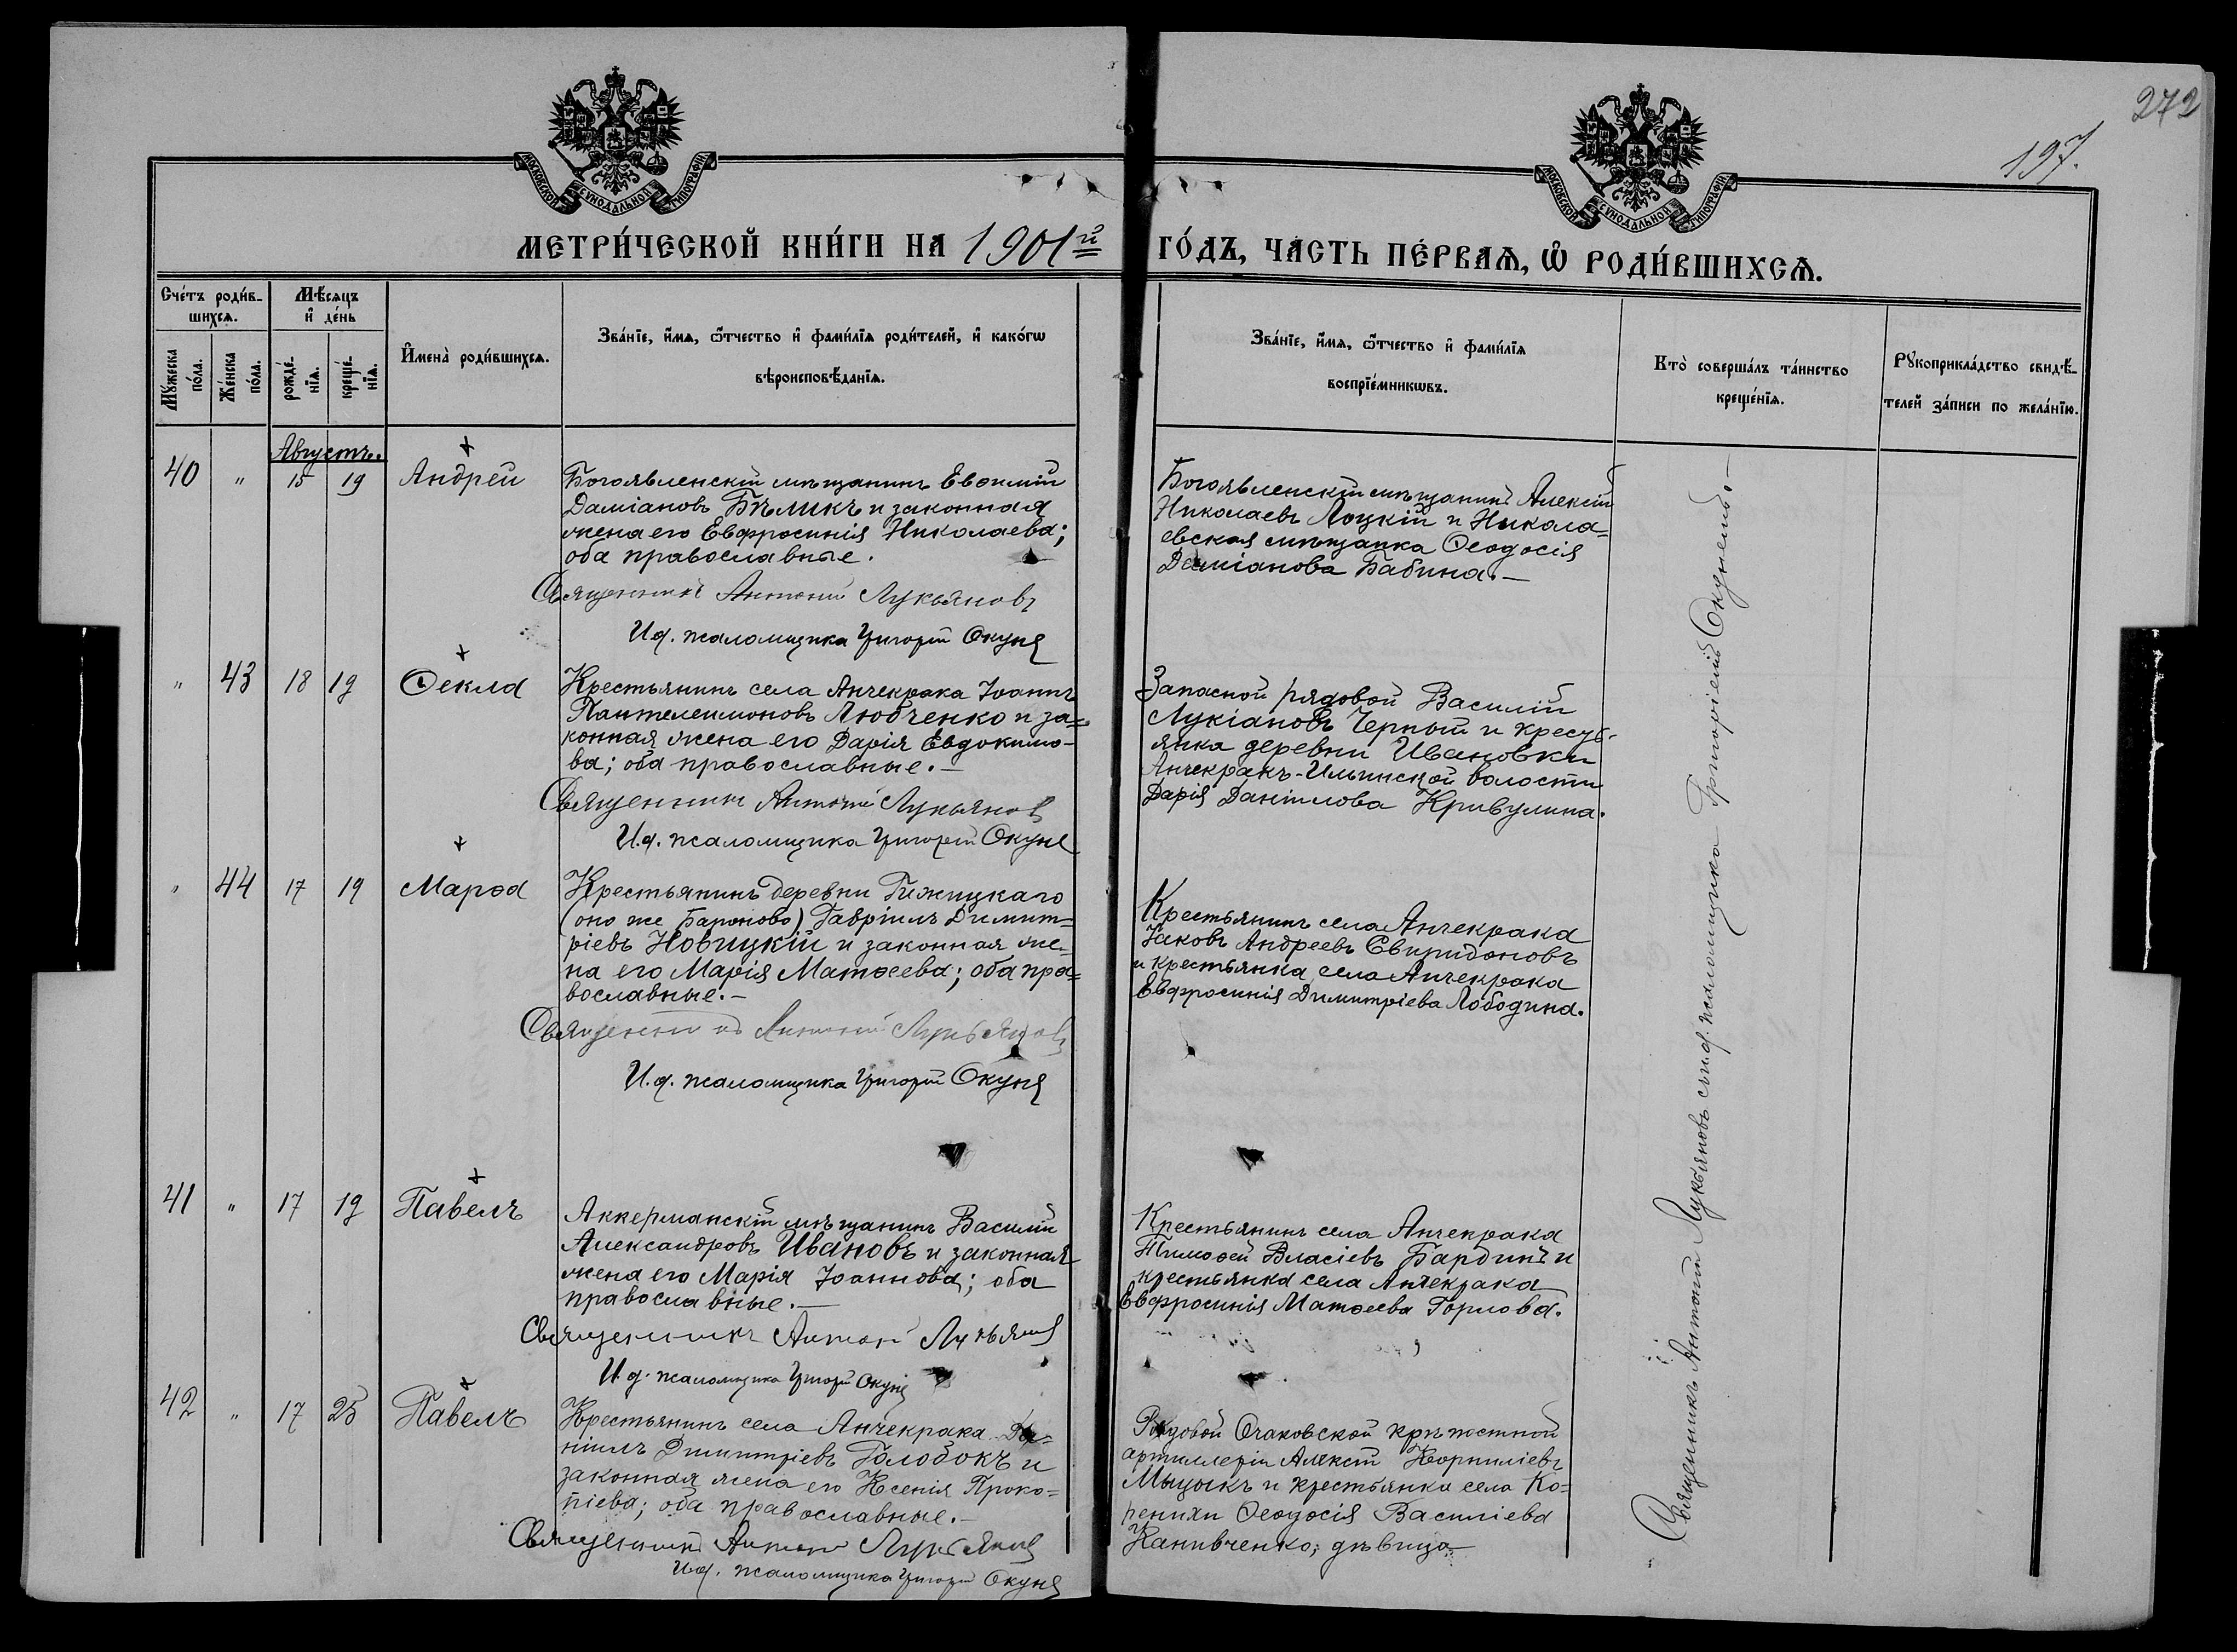 272
197.
МОСКОВСКОЙ СУНОДАЛЬНОЙ ТИПОГРАФІИ
МОСКОВСКОЙ СУНОДАЛЬНОЙ ТИПОГРАФІИ
МЕТРИ́ЧЕСКОЙ КНИ́ГИ НА 1901й ГО́ДЪ, ЧА́СТЬ ПЕ́РВАѦ, Ѡ҆ РОДИ́ВШИХСѦ.
Сче́тъ роди́в-
шихсѧ.
Мꙋ́жеска
по́ла.
Же́нска
по́ла.
Мѣ́сѧцъ
и҆ де́нь
рожде́-
нїѧ.
креще́-
нїѧ.
И҆мена̀ роди́вшихсѧ.
Зва́нїе, и҆́мѧ, ѻ҆́тчество и҆ фами́лїѧ роди́телей, и҆ како́гѡ
вѣроисповѣ́данїѧ.
Зва́нїе, и҆́мѧ, ѻ҆́тчество и҆ фами́лїѧ
воспрїе́мникѡвъ.
Кто̀ соверша́лъ та́инство
креще́нїѧ.
Рꙋкоприкла́дство свидѣ́-
телей за́писи по жела́нїю.
Августъ.
40 " 15 19 Андрей
Богоявленскій мѣщанинъ Евѳимій
Даміановъ Бѣликъ и законная
жена его Евфросинія Николаева;
оба православные.
Священникъ Антоній Лукьяновъ
И.д. псаломщика Григорій Окунь
Богоявленскій мѣщанинъ Алексій
Николаевъ Лоцкій и Никола=
евская мѣщанка Ѳеодосія
Даміанова Бабина.—
" 43 18 19 Ѳекла
Крестьянинъ села Анчекрака Іоаннъ
Пантелеимоновъ Любченко и за=
конная жена его Дарія Евдокимо-
ва; оба православные.—
Священникъ Антоній Лукьяновъ
И.д. псаломщика Григорій Окунь
Запасной рядовой Василій
Лукіановъ Черный и кресть-
янка деревни Ивановки
Анчекракъ-Ильинской волости
Дарія Даніилова Кривулина.
" 44 17 19 Марѳа
Крестьянинъ деревни Гижицкаго
(оно же Бароново) Гавріилъ Димит=
ріевъ Новицкій и законная же-
на его Марія Матѳеева; оба пра=
вославные.—
Священникъ Антоній Лукьяновъ
И.д. псаломщика Григорій Окунь
Крестьянинъ села Анчекрака
Іаковъ Андреевъ Свиридоновъ
и крестьянка села Анчекрака
Евфросинія Димитріева Лободина.
41 " 17 19 Павелъ
Аккерманскій мѣщанинъ Василій
Александровъ Ивановъ и законная
жена его Марія Іоаннова; оба
православные.—
Священникъ Антоній Лукьяновъ
И.д. псаломщика Григорій Окунь
Крестьянинъ села Анчекрака
Тимоѳей Власіевъ Бардинъ и
крестьянка села Анчекрака
Евфросинія Матѳеева Горлова.
42 " 17 25 Павелъ
Крестьянинъ села Анчекрака Да=
ніилъ Димитріевъ Голобокъ и
законная жена его Ксенія Проко=
піева; оба православные.—
Священникъ Антоній Лукьяновъ
И.д. псаломщика Григорій Окунь
Рядовой Очаковской крѣпостной
артиллеріи Алексій Корниліевъ
Мыцыкъ и крестьянка села Ко=
ренихи Ѳеодосія Василіева
Канивченко; дѣвица
Священникъ Антоній Лукьяновъ съ и.д. псаломщика Григоріемъ Окунемъ.—